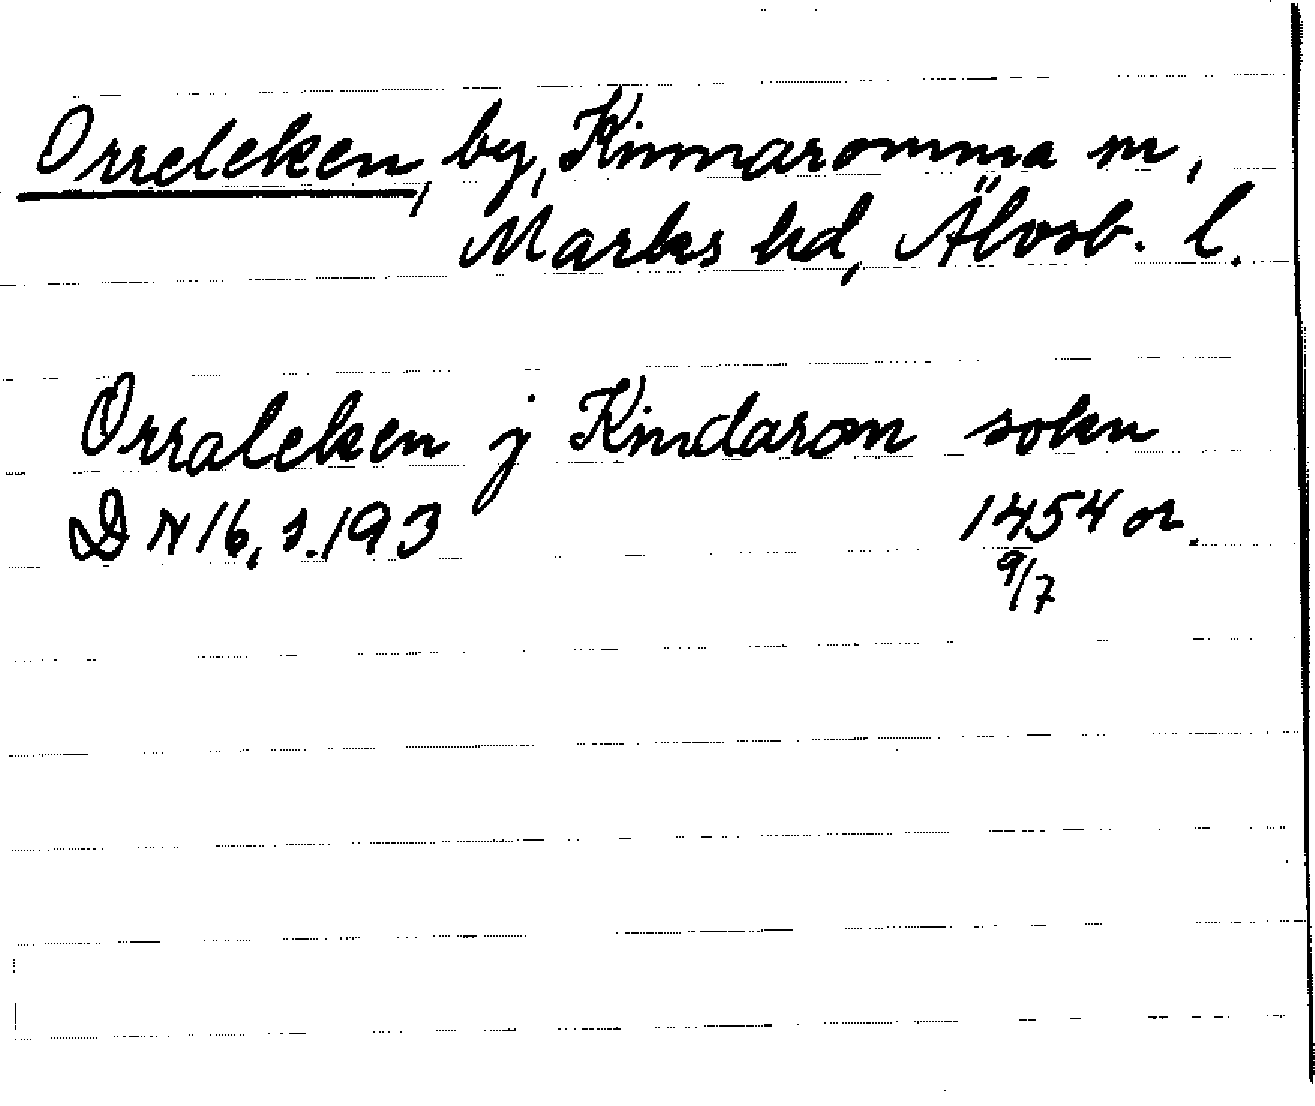 Orreleken, by, Kinnaromma sn,
Marks hd, Älvsb. l.
Orraleken j Kindarom sokn
DN 16, s. 193 1454 or.
9/7